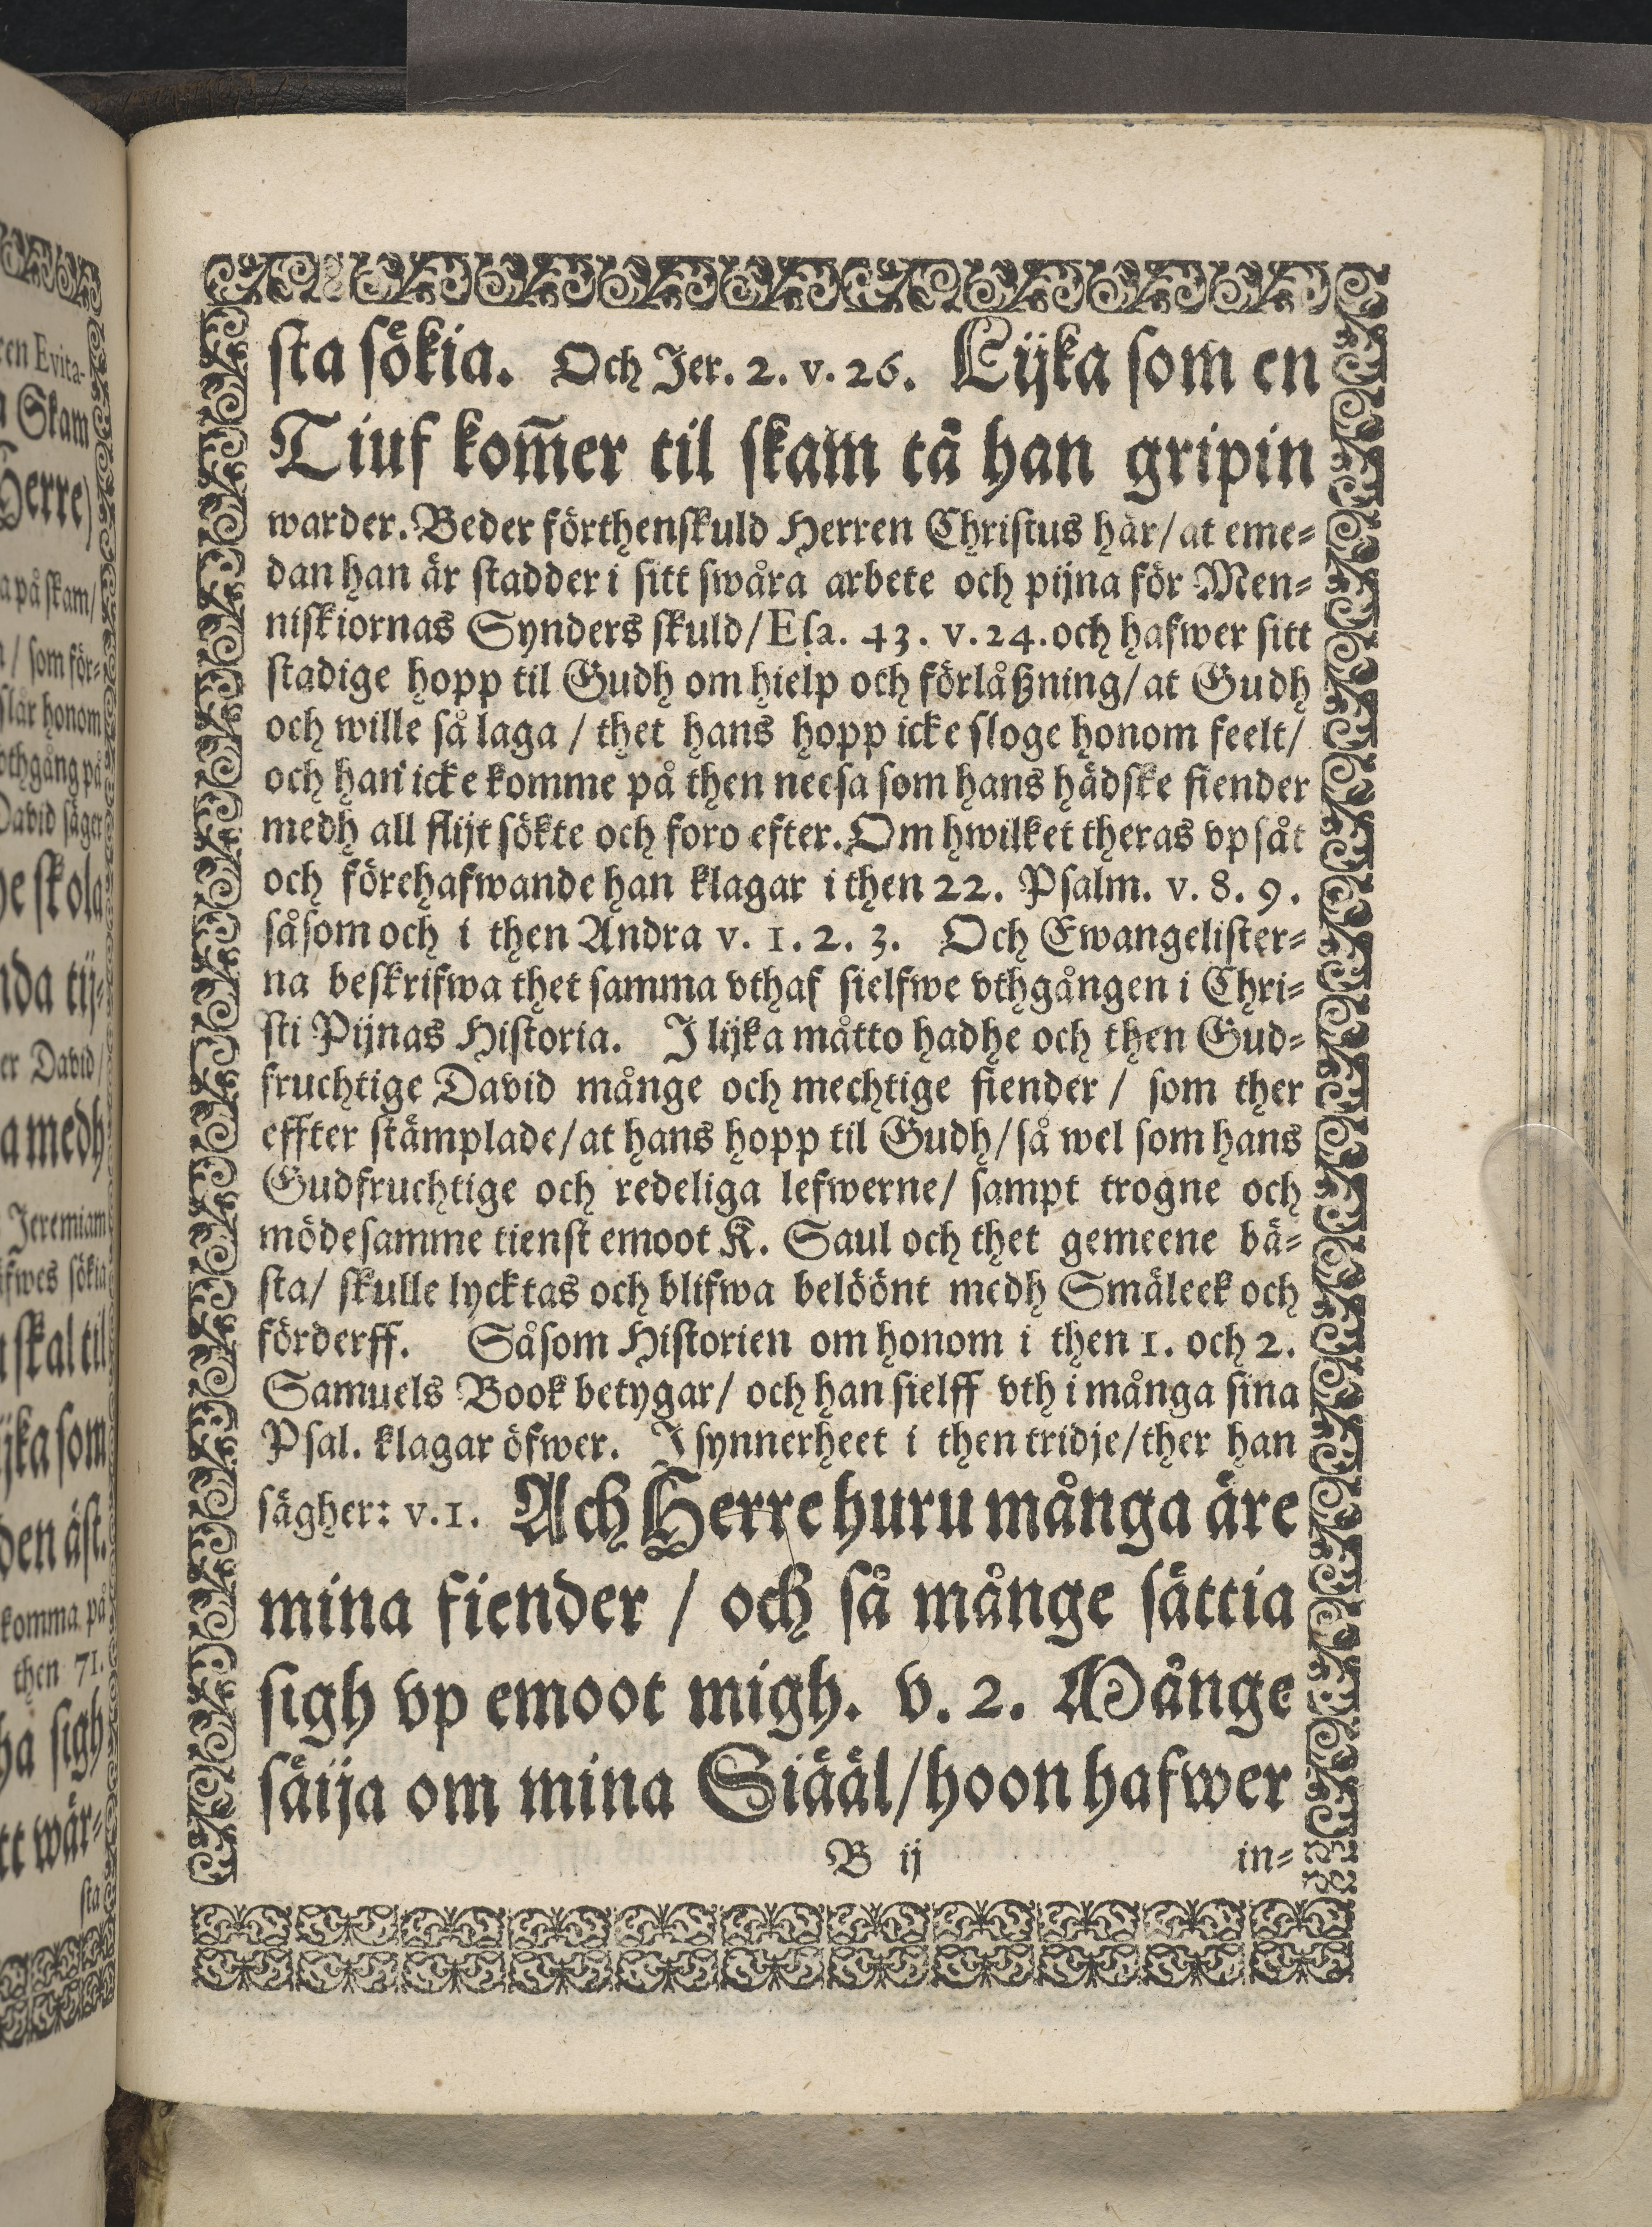 sta sökia. Och Jer. 2. v. 26. Lijka som en
Tiuf kom̃er til skam tå han gripin
warder. Beder förthenskuld Herren Christus här/ at eme-
dan han är stadder i sitt swåra arbete och pijna för Men-
niskiornas Synders skuld/ Esa. 43. v. 24. och hafwer sitt
stadige hopp til Gudh om hielp och förlåßning/ at Gudh
och wille så laga / thet hans hopp icke sloge honom feelt/
och han icke komme på then neesa som hans hädske fiender
medh all flijt sökte och foro efter. Om hwilket theras vpsåt
och förehafwande han klagar i then 22. Psalm. v. 8. 9.
såsom och i then Andra v. 1. 2. 3. Och Ewangelister-
na beskrifwa thet samma vthaf sielfwe vthgången i Chri-
sti Pijnas Historia. J lijka måtto hadhe och then Gud-
fruchtige David månge och mechtige fiender / som ther
effter stämplade/ at hans hopp til Gudh/ så wel som hans
Gudfruchtige och redeliga lefwerne/ sampt trogne och
mödesamme tienst emoot K. Saul och thet gemeene bä-
sta/ skulle lycktas och blifwa belöönt medh Smäleek och
förderff. Såsom Historien om honom i then 1. och 2.
Samuels Book betygar/ och han sielff vth i många sina
Psal. klagar öfwer. J synnerheet i then tridje/ ther han
sägher: v. 1. Ach Herre huru många äre
mina fiender / och så månge sättia
sigh vp emoot migh. v. 2. Månge
säija om mina Siääl/ hoon hafwer
B ij in-